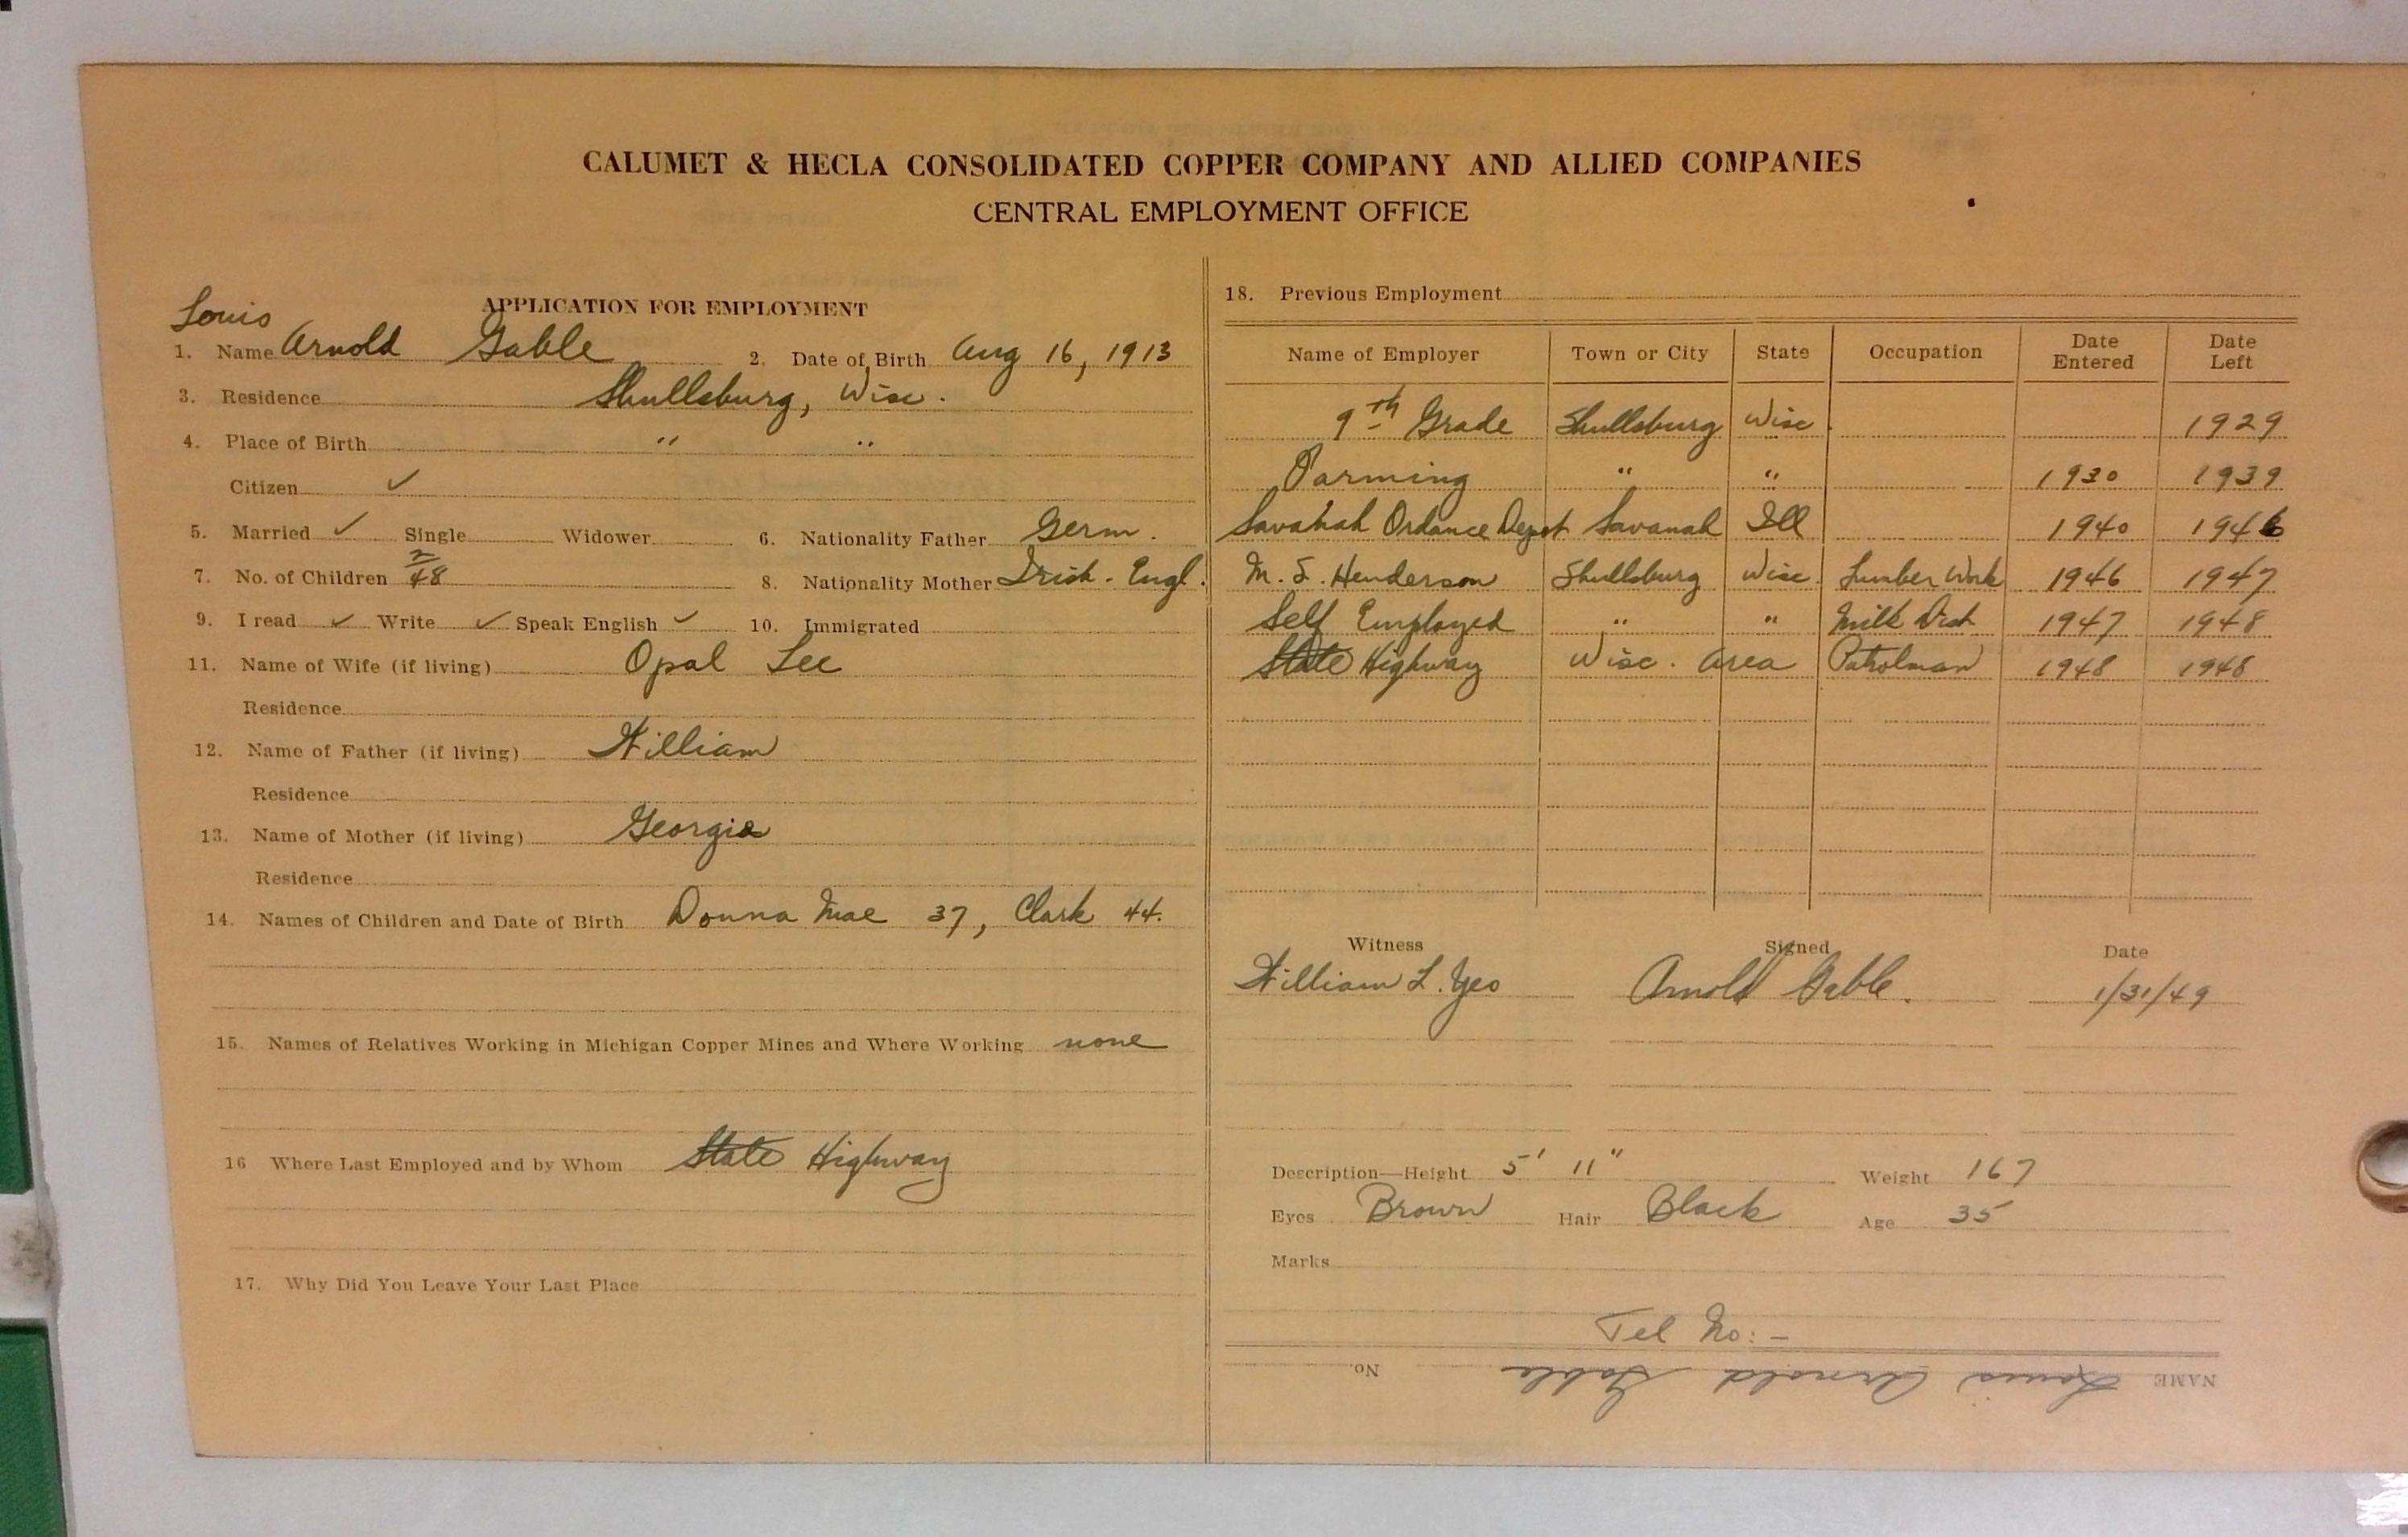 CALUMET & HECLA CONSOLIDATED COPPER COMPANY AND ALLIED COMPANIES
CENTRAL EMPLOYMENT OFFICE
APPLICATION FOR EMPLOYMENT
Louis
1. Name Arnold Gable 2. Date of Birth Aug 16, 1913
3. Residence Shullsburg, Wisc.
4. Place of Birth " "
Citizen ✓
5. Married ✓ Single Widower 6. Nationality Father Germ.
7. No. of Children 2 8. Nationality Mother Irish - Engl.
9. I read ✓ Write ✓ Speak English ✓ 10. Immigrated
11. Name of Wife (if living) Opal Lee
Residence
12. Name of Father (if living) William
Residence
13. Name of Mother (if living) Georgia
Residence
14. Names of Children and Date of Birth Donna Mae 37, Clark 44.
15. Names of Relatives Working in Michigan Copper Mines and Where Working none
16 Where Last Employed and by Whom State Highway
17. Why Did You Leave Your Last Place
18. Previous Employment
Name of Employer Town or City State Occupation Date Entered Date Left
9th Grade Shullsburg Wisc. 1929
Farming " " 1930 1939
Savahah Ordance Depot Savanah Ill 1940 1946
M. S. Henderson Shullsburg Wisc. Lumber Work 1946 1947
Self Employed " " Milk Dist 1947 1948
State Highway Wisc. Area Patrolman 1948 1948
Witness Signed Date
William L. Yeo Arnold Gable. 1/31/49
Description—Height 5' 11" Weight 167
Eyes Brown Hair Black Age 35
Marks
Tel No: -
NAME Louis Arnold Gable No.